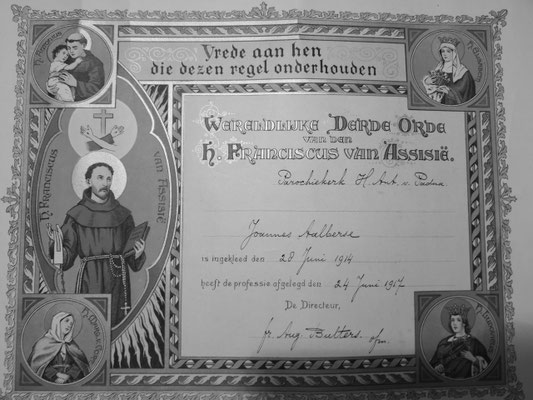 Vrede aan hen
die dezen regel onderhouden
H. FRANCISCUS VAN ASSISIË
WERELDLIJKE DERDE ORDE
VAN DEN
H. FRANCISCUS VAN ASSISIË.
Parochiekerk H. Ant. v. Padua
Joannes Aalberse
is ingekleed den 28 Juni 1914
heeft de professie afgelegd den 24 Juni 1917
De Directeur,
fr. Aug. Bulters ofm.